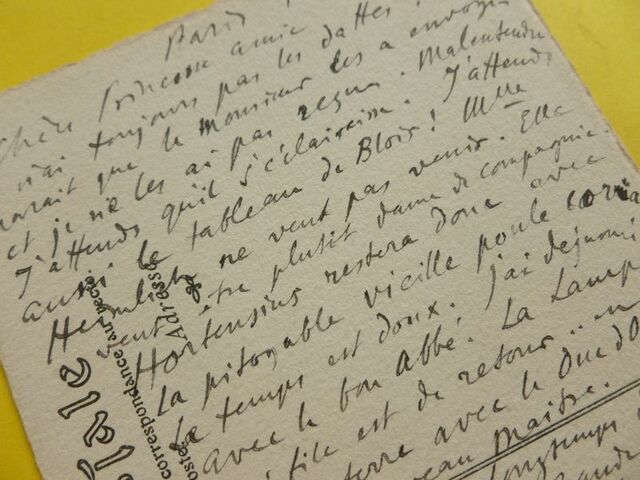 Paris
Chère Princesse amie
n'ai toujours pas les dattes !
paraît que le Monsieur les a envoyé
et je ne les ai pas reçues. Malentendu
J'attends qu'il s'éclaircisse. J'attends
aussi le tableau de Blois ! Mlle
ne veut pas venir. Elle
veut être plutôt dame de compagnie.
Hortensius restera donc avec
La pitoyable vieille poule
Le temps est doux. J'ai dejeuné
avec le bon Abbé. La Lamp
file est de retour
terre avec le Duc d'O
eau maître.
longtemps
Adresse
correspondance au rece
postale